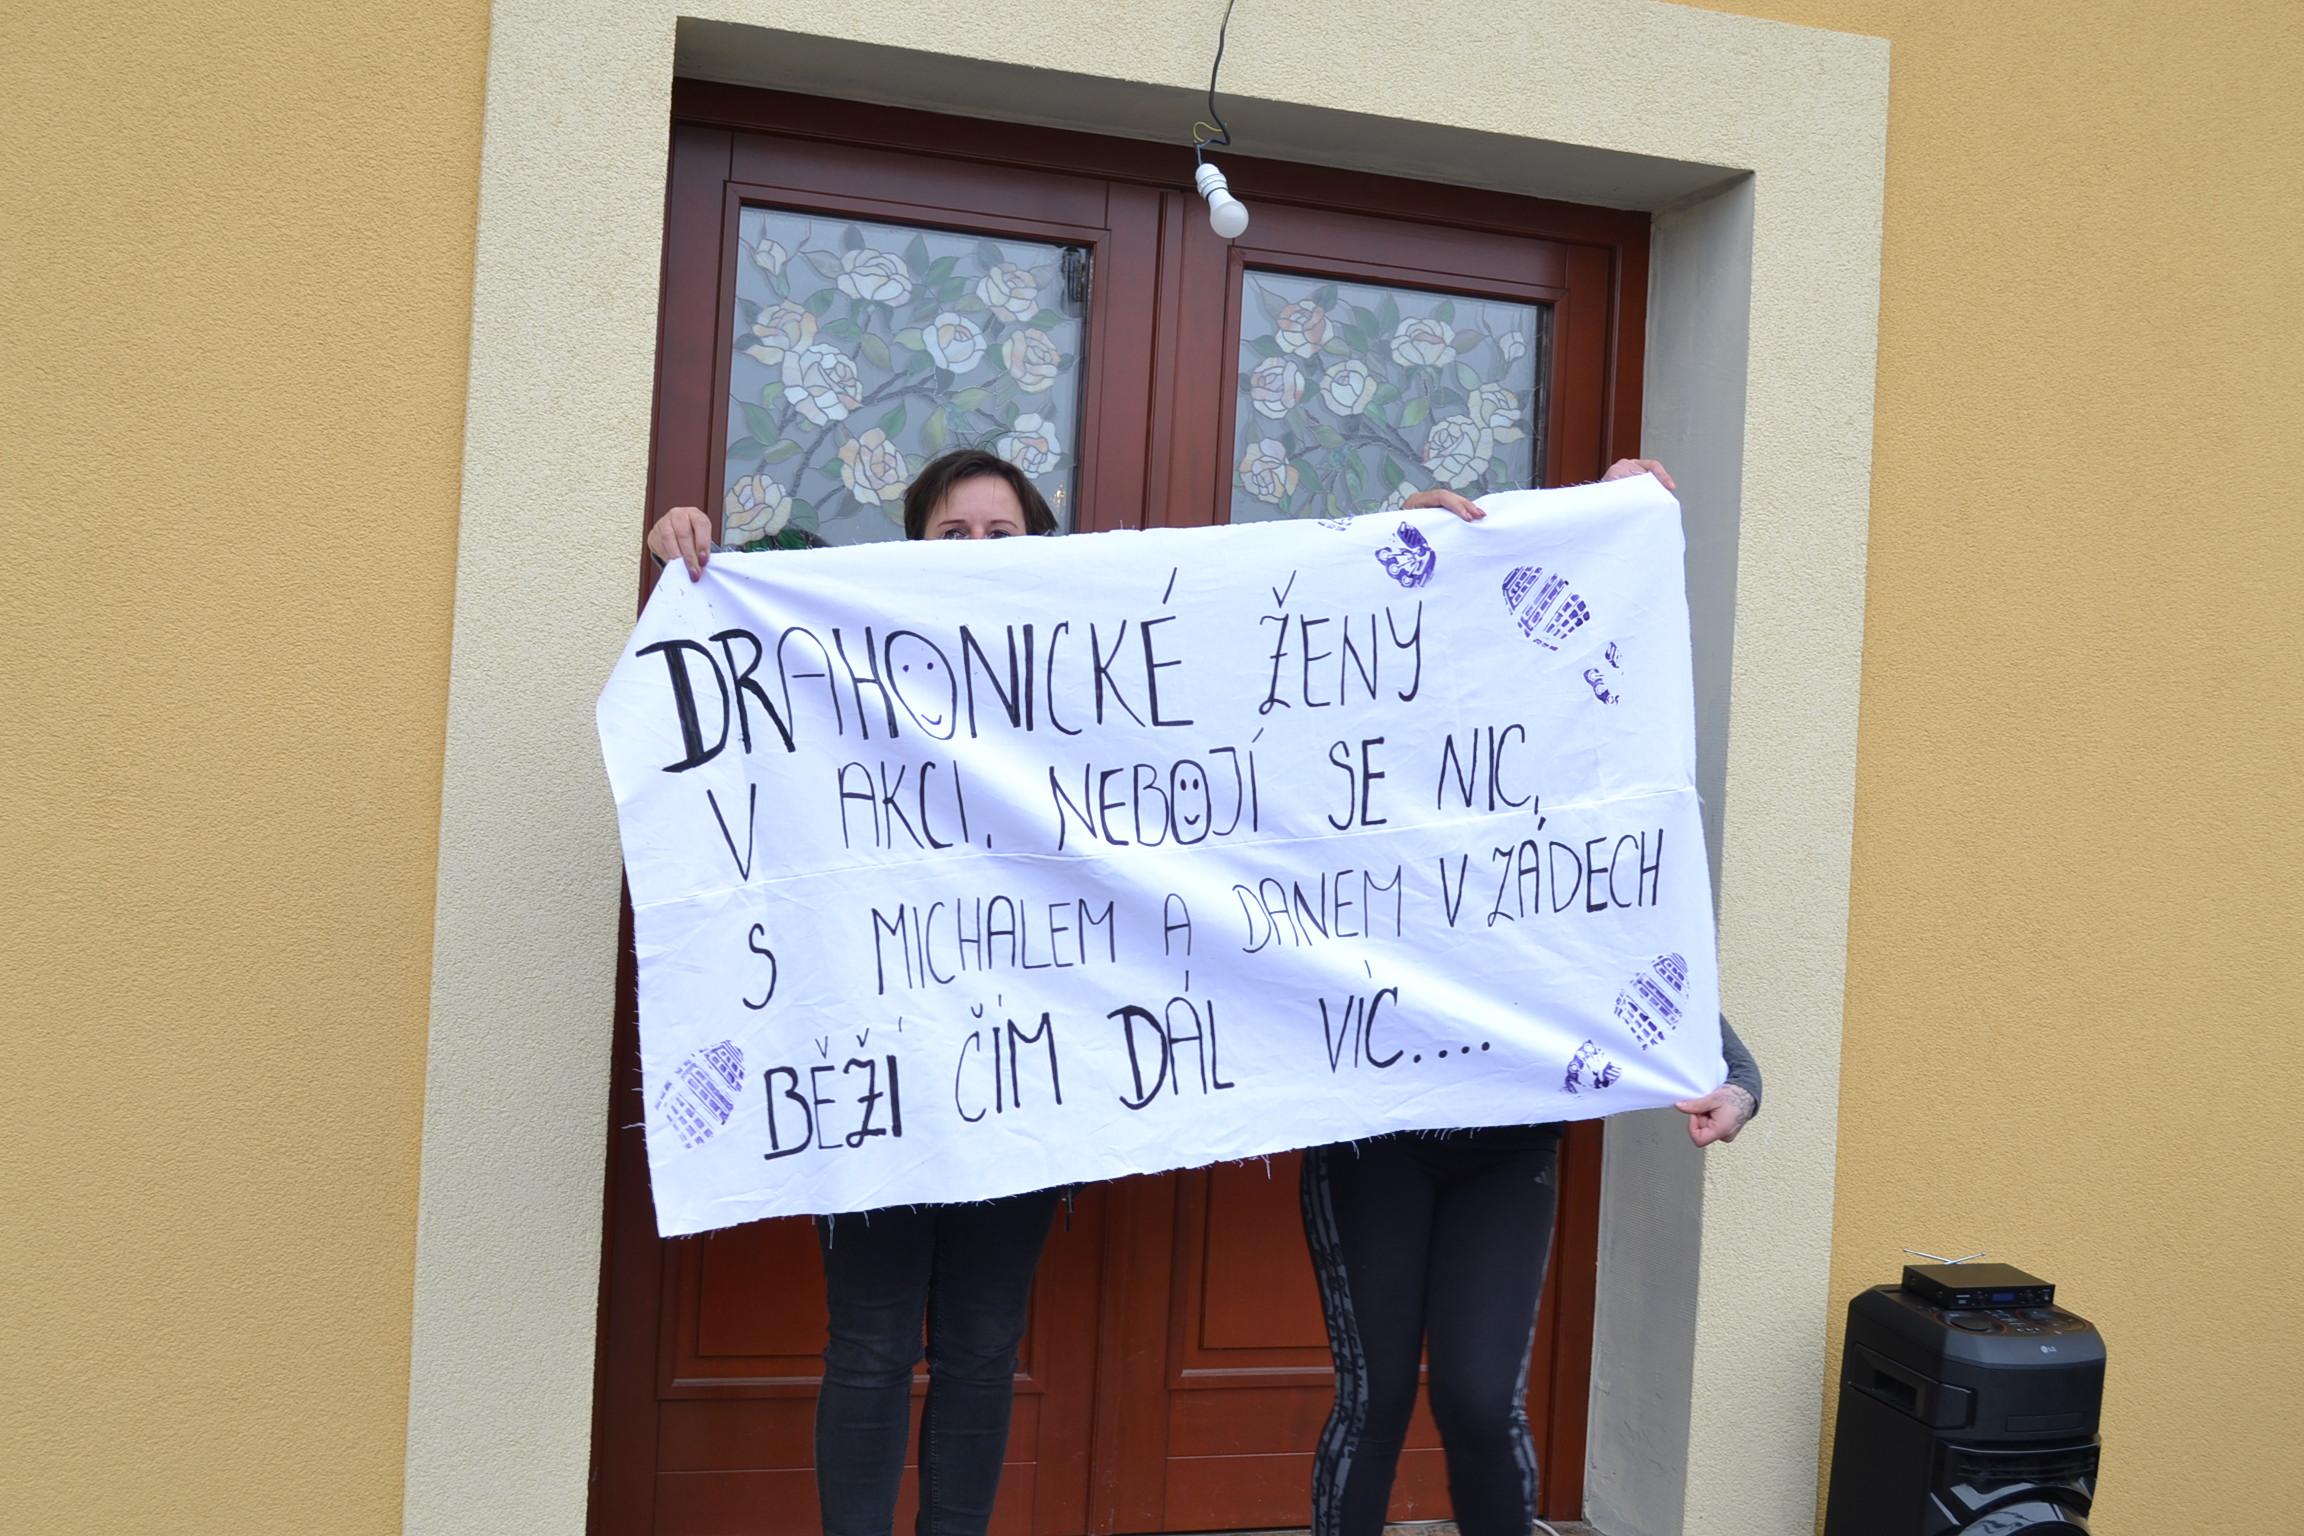 DRAHONICKÉ ŽENY
V AKCI. NEBOJÍ SE NIC,
S MICHALEM A DANEM V ZÁDECH
BĚŽÍ ČÍM DÁL VÍC....
LG